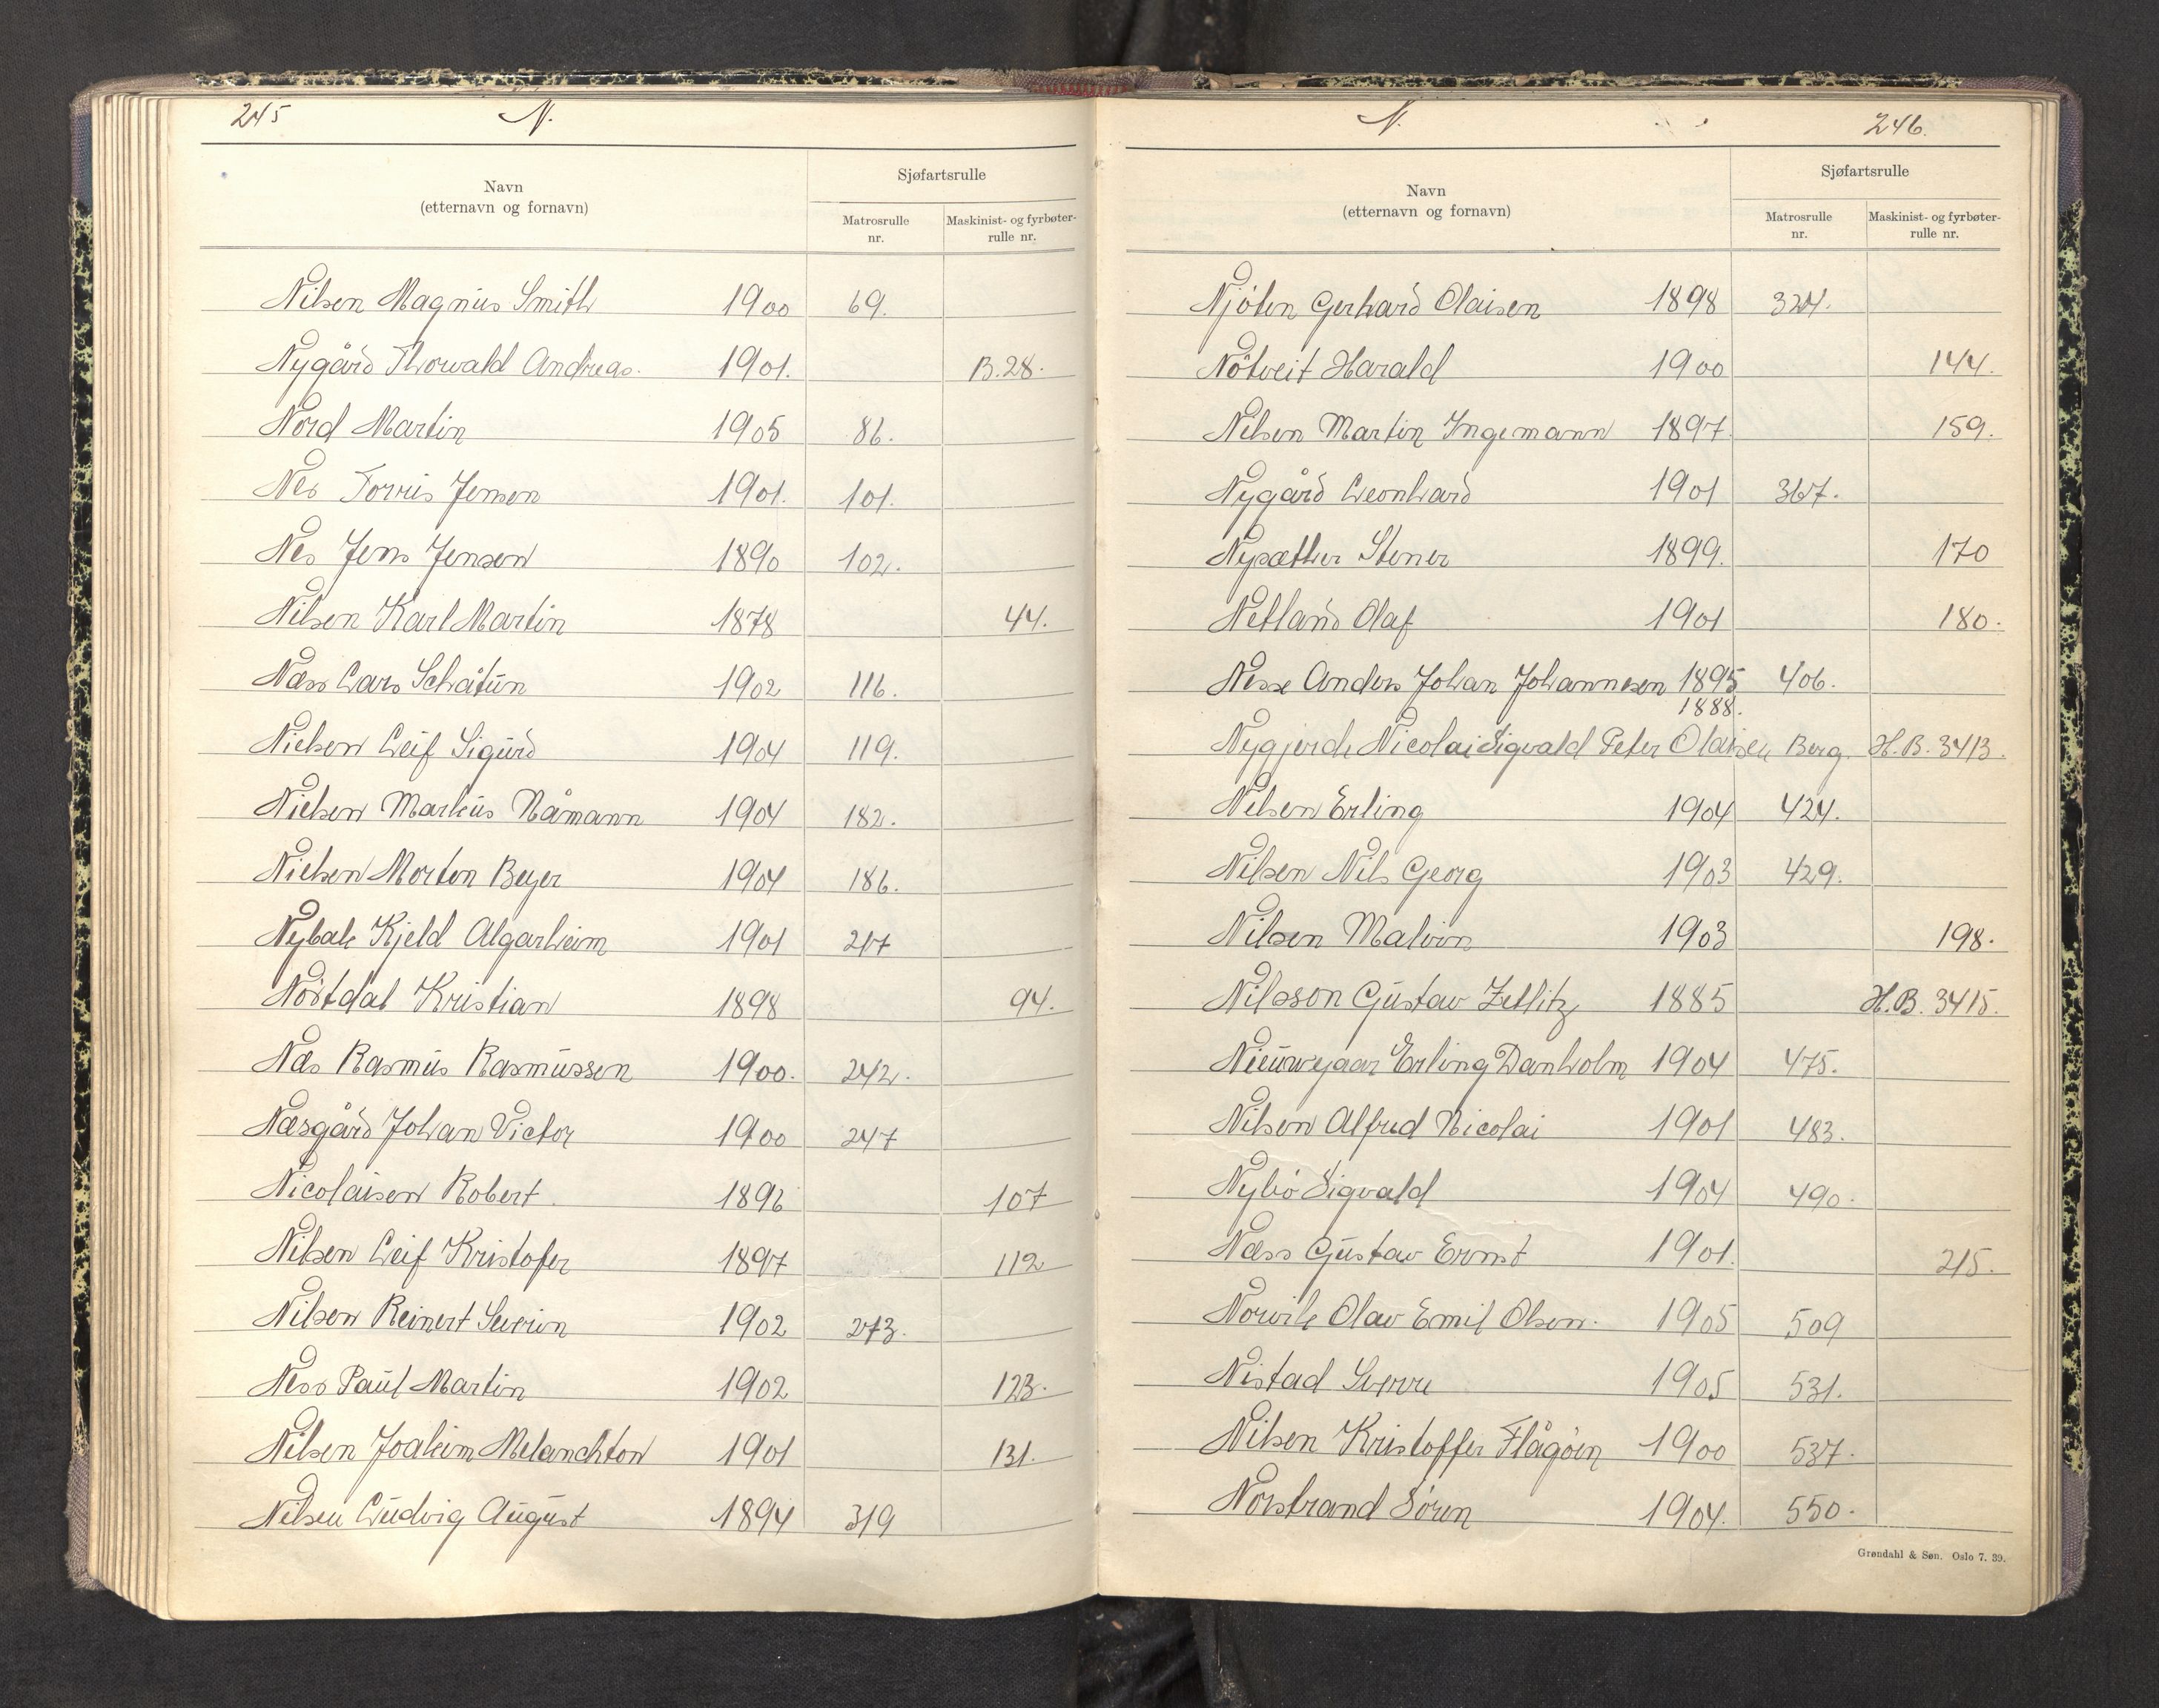 245 N.
Navn
(etternavn og fornavn)
Sjøfartsrulle
Matrosrulle
nr.
Maskinist- og fyrbøter-
rulle nr.
Nilsen Magnus Smith 1900 69.
Nygård Thorvald Andreas. 1901. B.28.
Nord Martin 1905 86.
Nes Torris Jensen 1901. 101.
Nes Jens Jensen 1890 102.
Nilsen Karl Martin 1878 44.
Næss Lars Schåtun 1902 116.
Nielsen Leif Sigurd 1904 119.
Nielsen Markus Nåmann 1904 182.
Nielsen Morten Beyer 1904 186.
Nybak Kjeld Algarheim 1901 217
Nöstdal Kristian 1898 94.
Næs Rasmus Rasmussen 1900. 242.
Næsgård Johan Victor 1900 247
Nicolaisen Robert. 1896 107
Nilsen Leif Kristofer 1897 112
Nilsen Reinert Severin 1902 273.
Ness Paul Martin 1902 123.
Nilsen Joakim Melanchton 1901 131.
Nilsen Ludvig August 1894 319
N. 246.
Navn
(etternavn og fornavn)
Sjøfartsrulle
Matrosrulle
nr.
Maskinist- og fyrbøter-
rulle nr.
Njöten Gerhard Olaisen 1898 324.
Nötveit Harald 1900 144.
Nilsen Martin Ingemann 1897. 159.
Nygård Leonhard 1901 367.
Nysæther Stener 1899. 170
Netland Olaf 1901 180.
Nesse Anders Johan Johannesen 1895 406.
1888.
Nygjerde Nicolai Sigvald Peter Olaisen Berg. H.B. 3413.
Nilsen Erling 1904 424.
Nilsen Nils Georg 1903 429.
Nilsen Malvin 1903 198.
Nilsson Gustav Zetlitz 1885 H.B. 3415.
Nieuwejaar Erling Danholm 1904 475.
Nilsen Alfred Nicolai 1901 483.
Nybö Sigvald 1904 490.
Næss Gustav Ernst 1901. 215.
Norvik Olav Emil Olsen. 1905 509
Nistad Sverre 1905 531.
Nilsen Kristoffer Flågöen 1900 537.
Norstrand Sören 1904. 550.
Grøndahl & Søn. Oslo 7. 39.